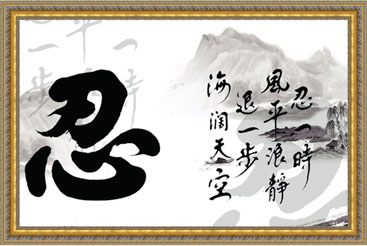 忍
忍一時
風平浪靜
退一步
海阔天空